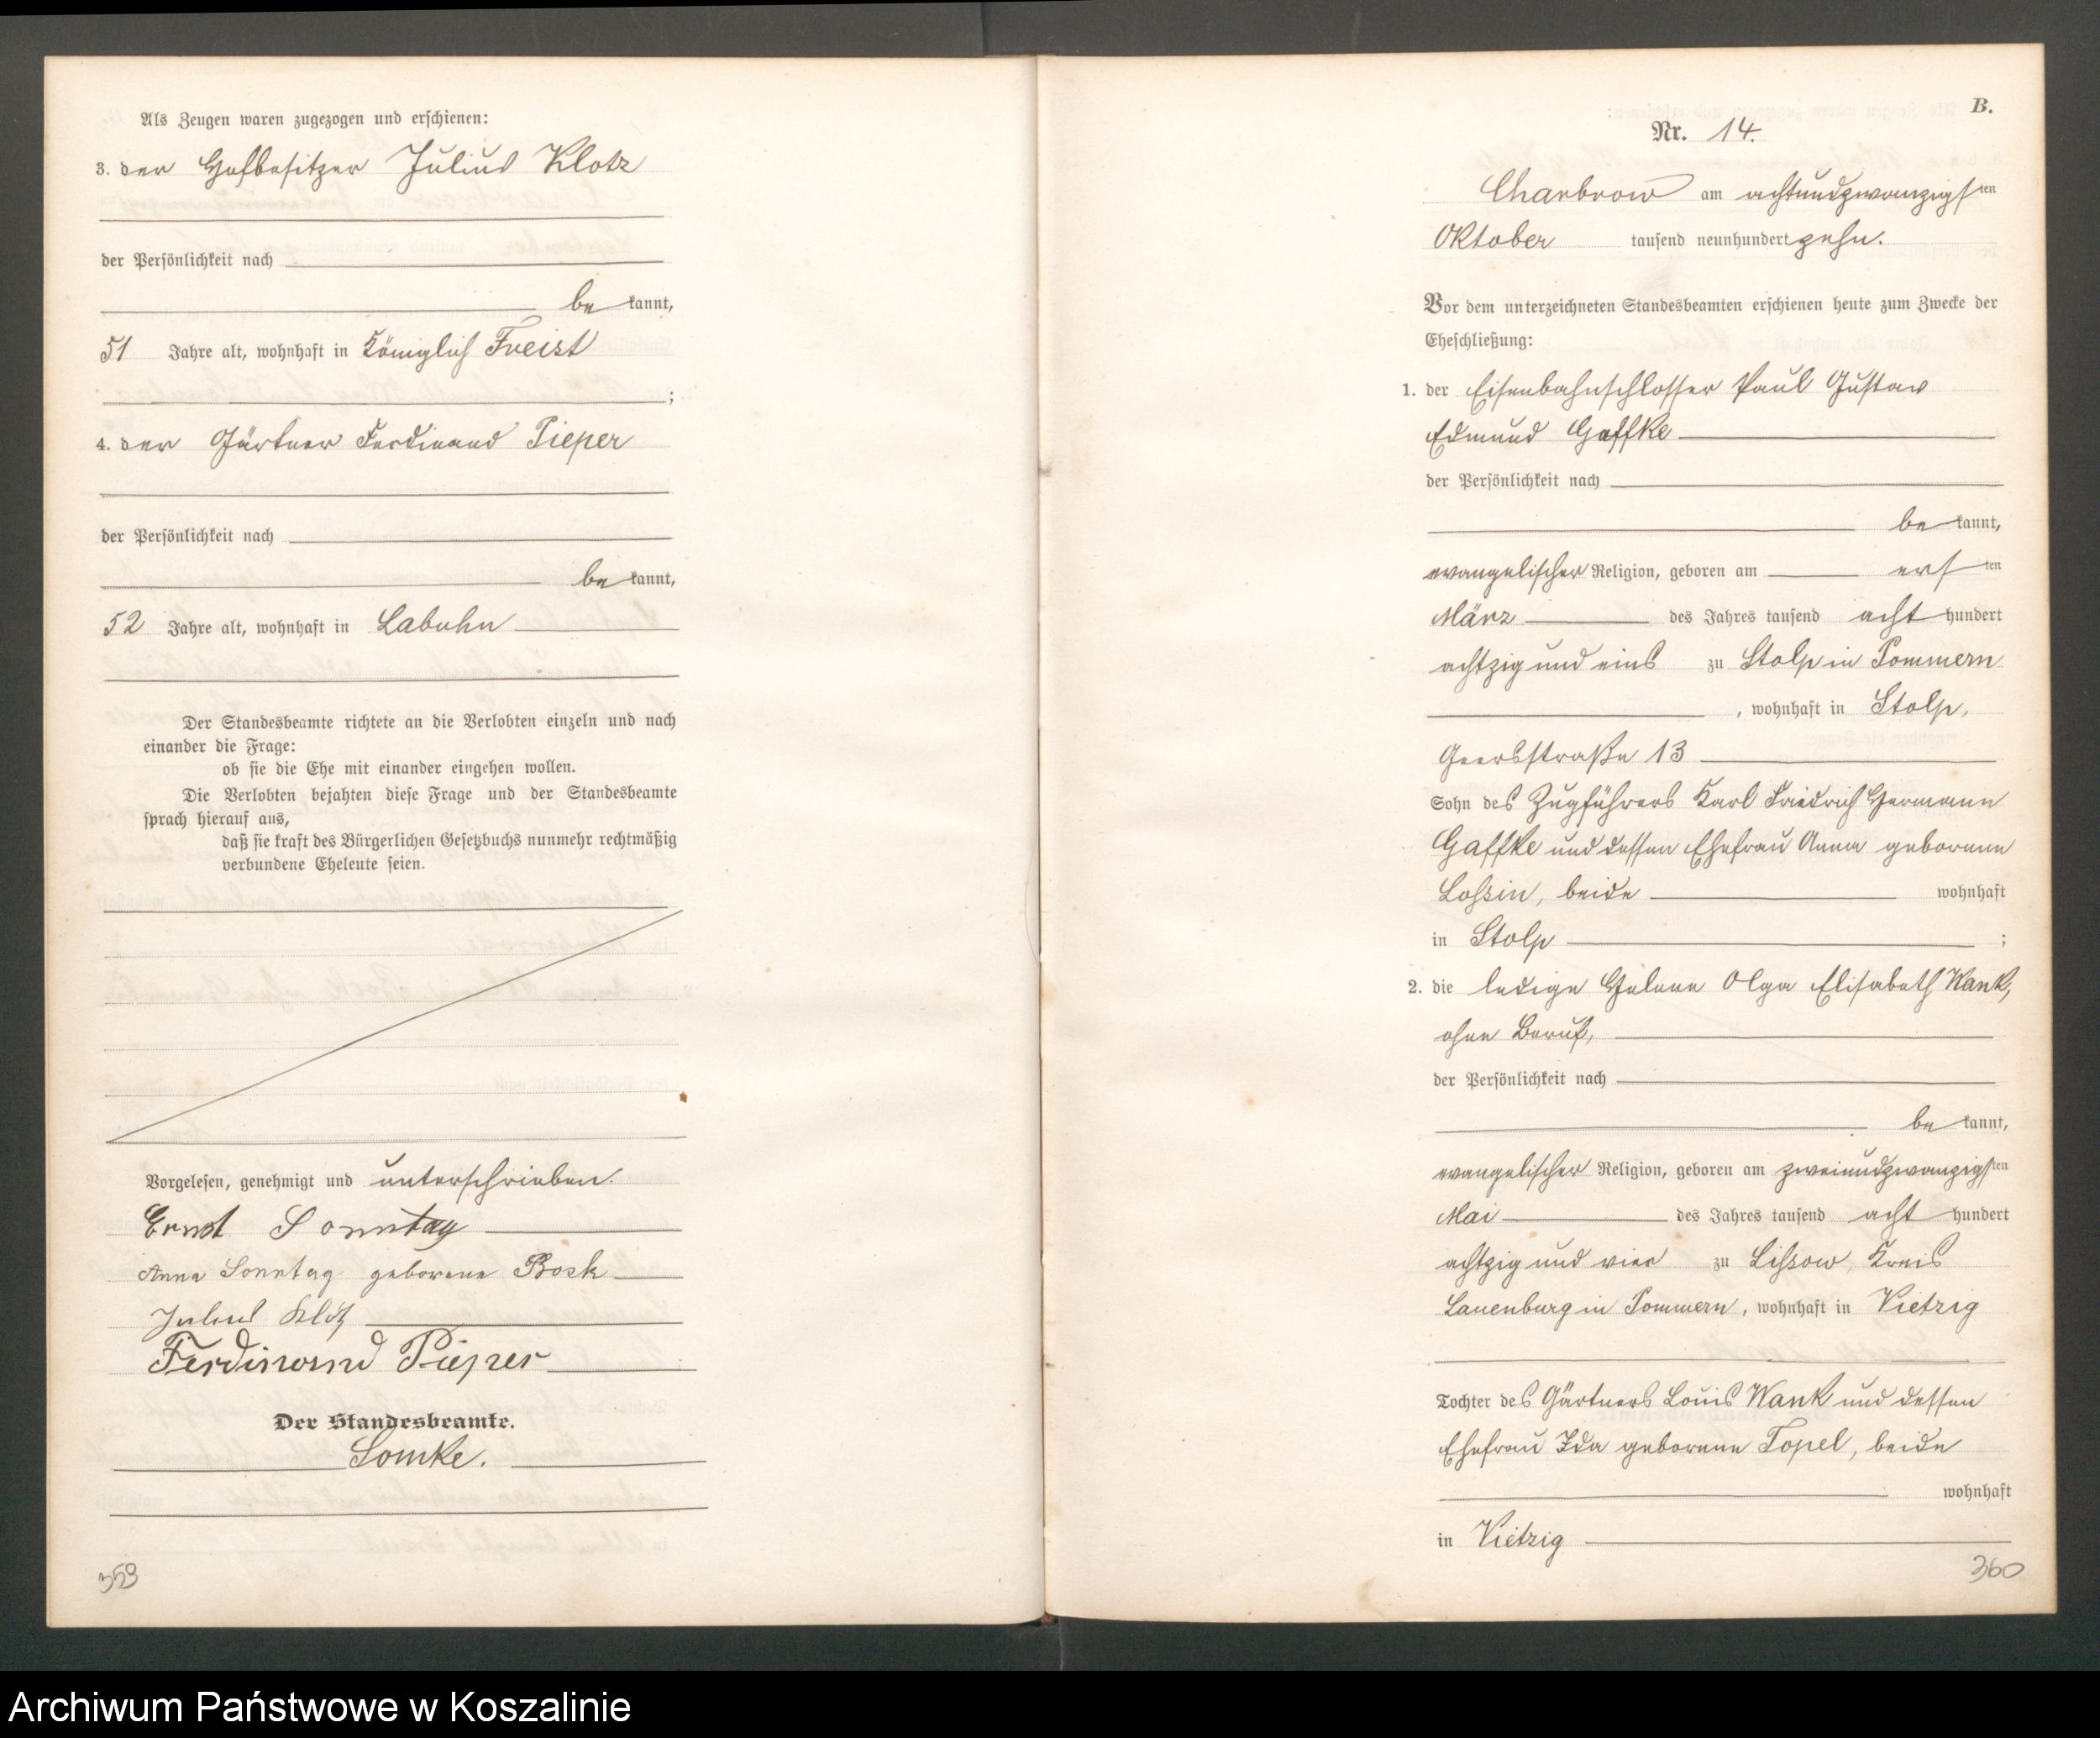 Als Zeugen waren zugezogen und erschienen:
3. der Hofbesitzer Julius Klotz
der Persönlichkeit nach
be kannt,
51 Jahre alt, wohnhaft in Königlich Freist
;
4. der Gärtner Ferdinand Pieper
der Persönlichkeit nach
be kannt,
52 Jahre alt, wohnhaft in Labuhn
Der Standesbeamte richtete an die Verlobten einzeln und nach
einander die Frage:
ob sie die Ehe mit einander eingehen wollen.
Die Verlobten bejahten diese Frage und der Standesbeamte
sprach hierauf aus,
daß sie kraft des Bürgerlichen Gesetzbuchs nunmehr rechtmäßig
verbundene Eheleute seien.
Vorgelesen, genehmigt und unterschrieben.
Ernst Sonntag
Anna Sonntag geborene Bock
Julius Klotz
Ferdinand Pieper
Der Standesbeamte.
Lomke.
359
B.
Nr. 14.
Charbrow am achtundzwanzigsten
Oktober tausend neunhundert zehn.
Vor dem unterzeichneten Standesbeamten erschienen heute zum Zwecke der
Eheschließung:
1. der Eisenbahnschlosser Paul Gustav
Edmund Gaffke
der Persönlichkeit nach
be kannt,
evangelischer Religion, geboren am ersten
März des Jahres tausend acht hundert
achtzig und eins zu Stolp in Pommern
, wohnhaft in Stolp,
Geersstraße 13
Sohn des Zugführers Karl Friedrich Hermann
Gaffke und dessen Ehefrau Anna geborene
Lossin, beide wohnhaft
in Stolp ;
2. die ledige Helene Olga Elisabeth Wank,
ohne Beruf,
der Persönlichkeit nach
be kannt,
evangelischer Religion, geboren am zweiundzwanzigsten
Mai des Jahres tausend acht hundert
achtzig und vier zu Lissow, Kreis
Lauenburg in Pommern, wohnhaft in Vietzig
Tochter des Gärtners Louis Wank und dessen
Ehefrau Ida geborene Topel, beide
wohnhaft
in Vietzig
360
Archiwum Państwowe w Koszalinie